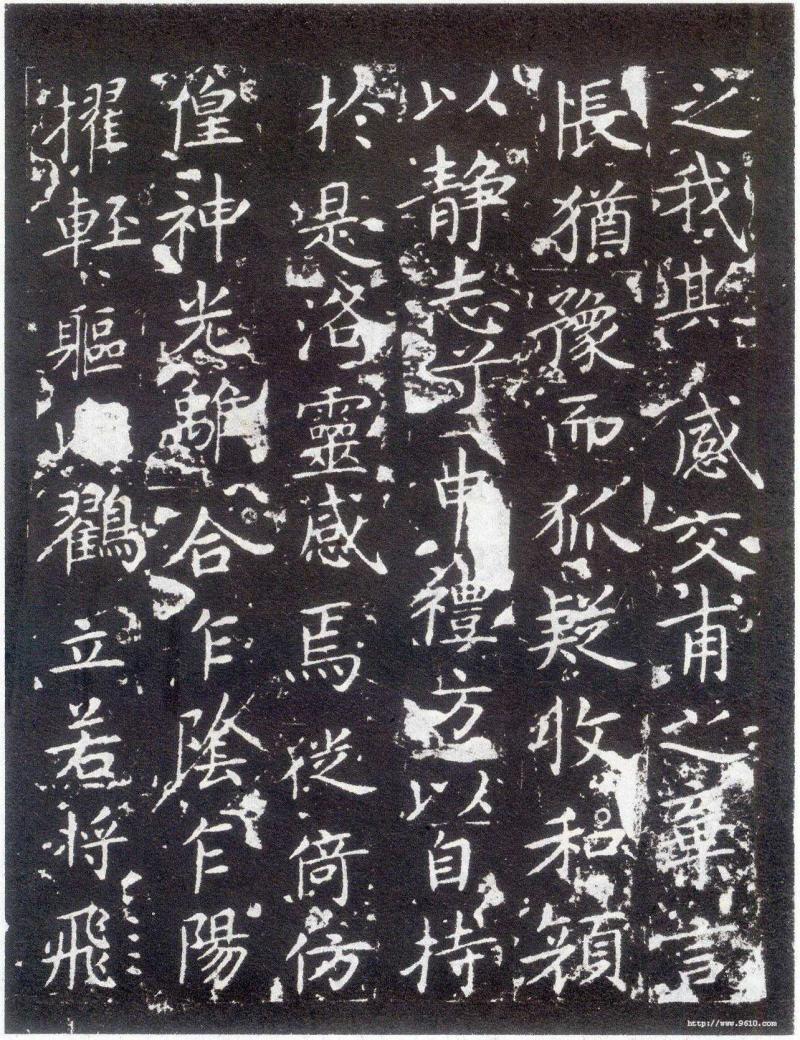 之我其感交甫之棄言
悵猶豫而狐疑收和顏
以静志兮申禮方以自持
於是洛靈感焉徙倚傍
偟神光離合乍陰乍陽
擢輕軀以鶴立若將飛
http://www.9610.com